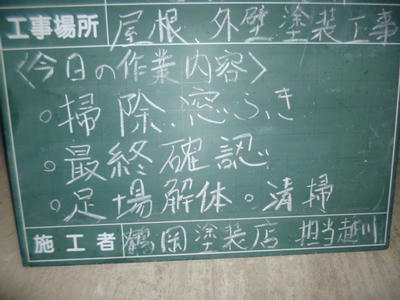 工事場所 屋根、外壁塗装工事
〈今日の作業内容〉
。掃除.窓ふき
。最終確認
。足場解体。清掃
施工者 鶴岡塗装店 担当越川